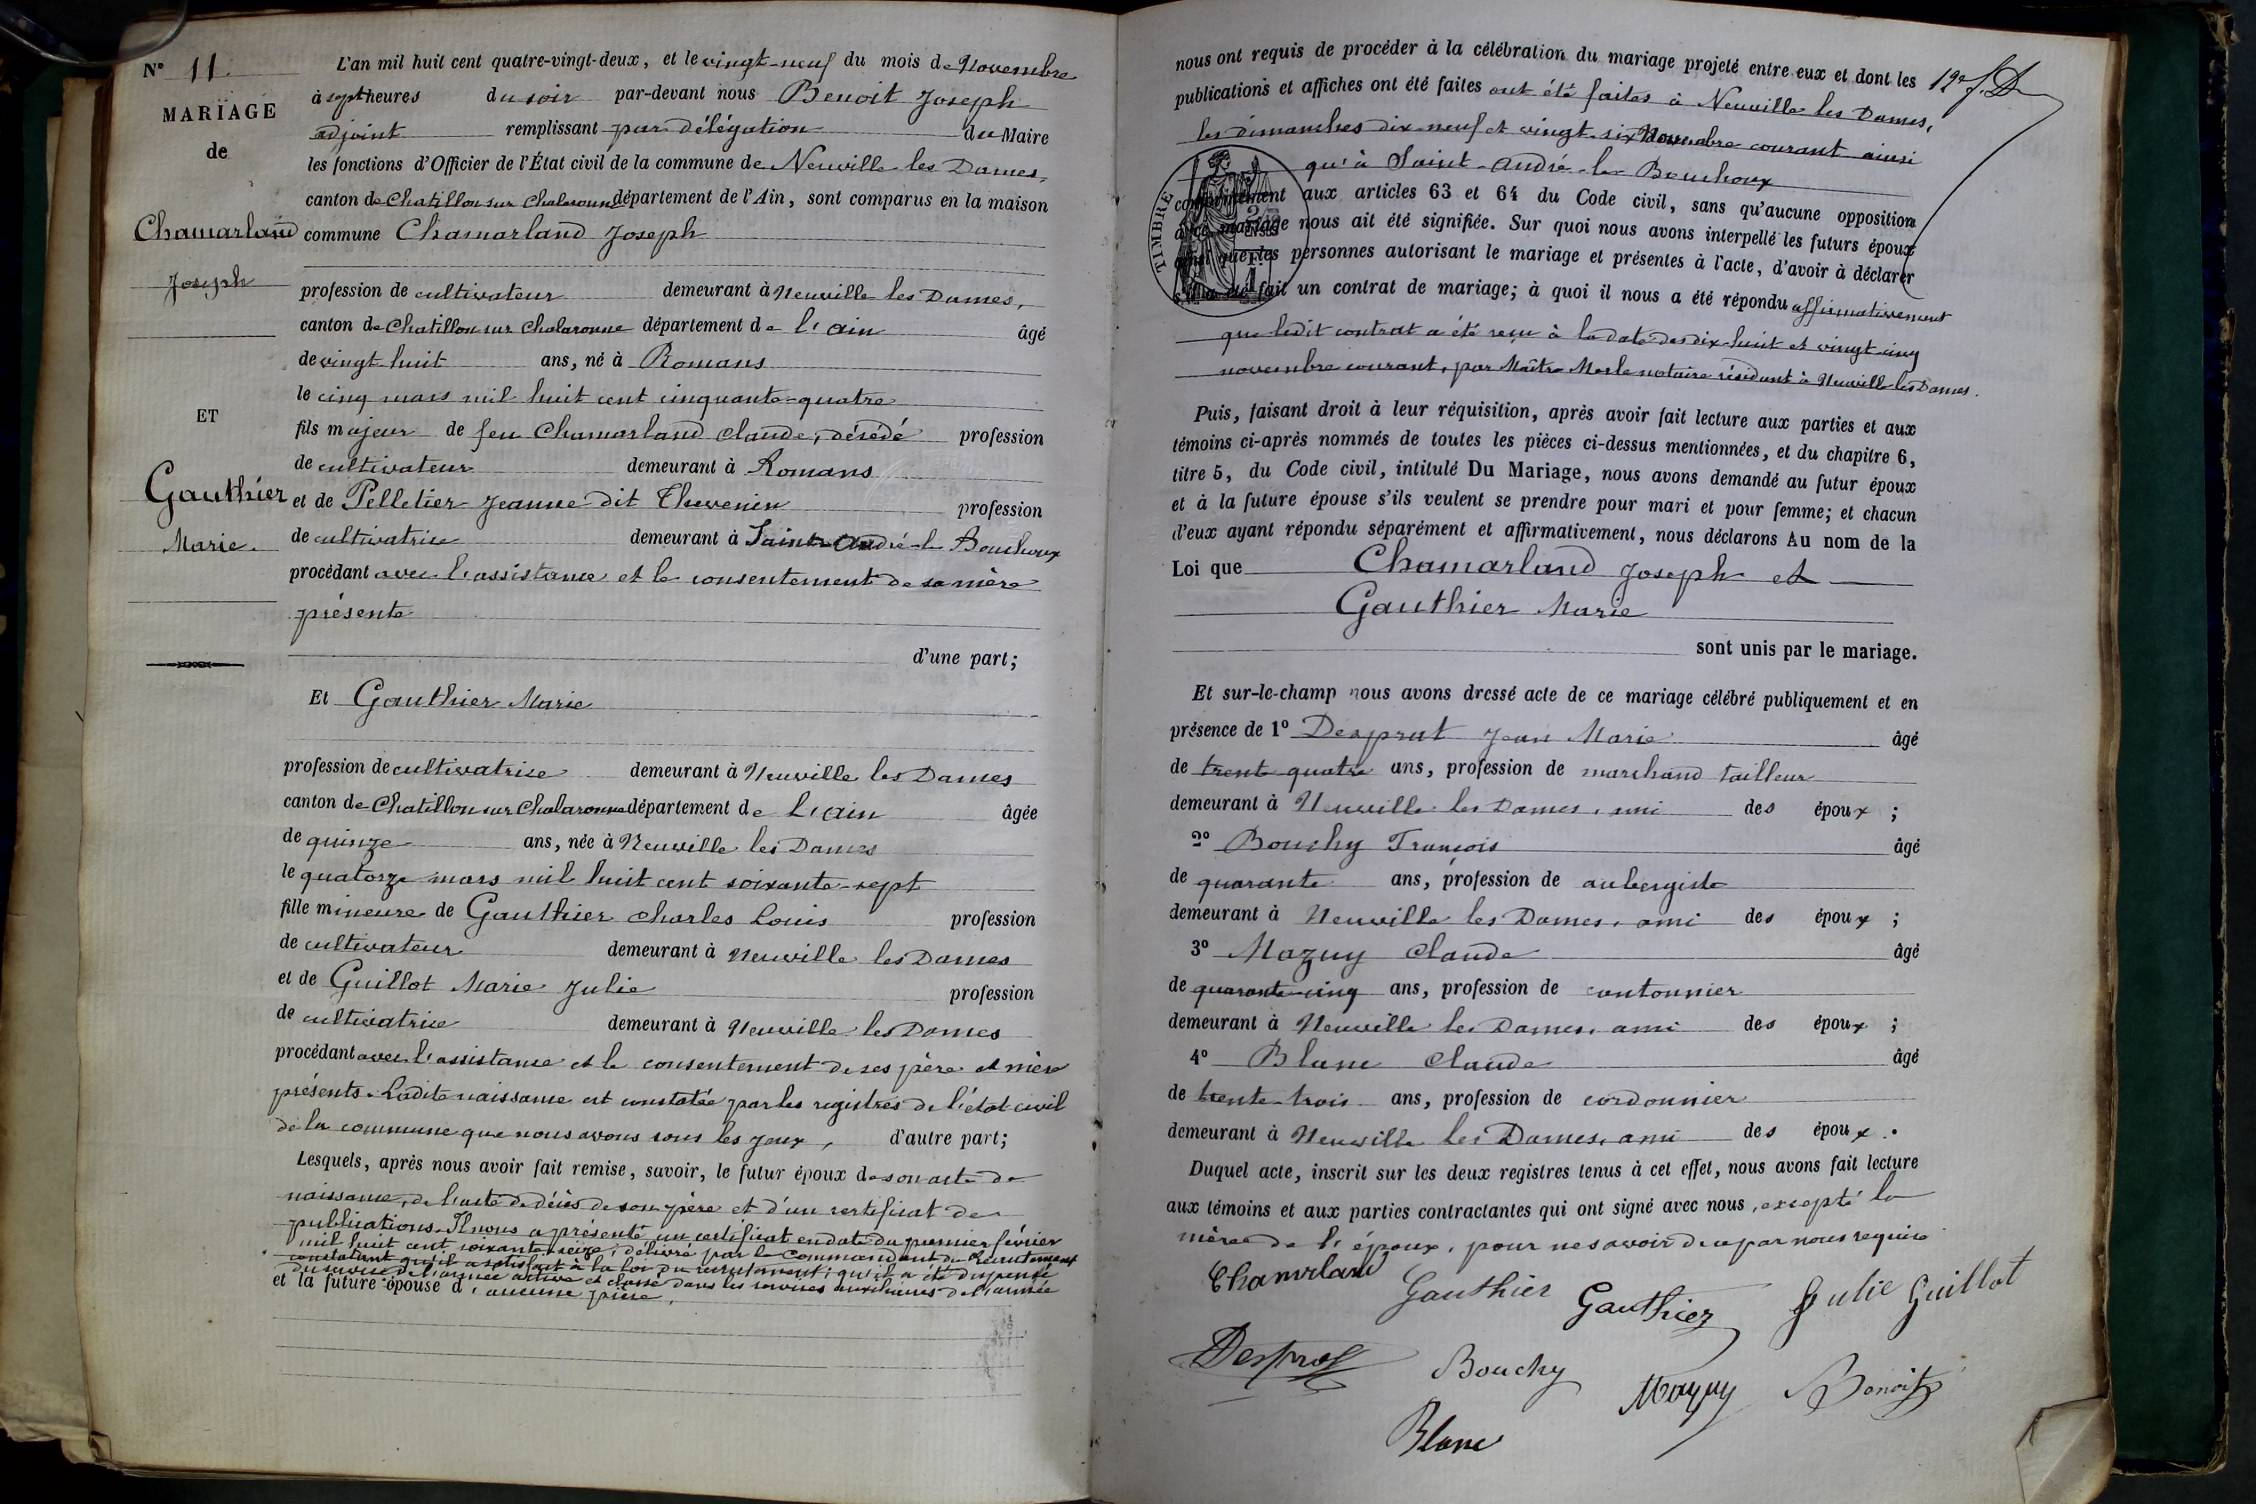 N° 11
MARIAGE
de
Chamarland
Joseph
ET
Gauthier
Marie.
L'an mil huit cent quatre-vingt-deux, et le vingt-neuf du mois de Novembre
à sept heures du soir par-devant nous Benoit Joseph
adjoint remplissant par délégation du Maire
les fonctions d'Officier de l'État civil de la commune de Neuville les Dames,
canton de Chatillon sur Chalaronne département de l'Ain, sont comparus en la maison
commune Chamarland Joseph
profession de cultivateur demeurant à Neuville les Dames,
canton de Chatillon sur Chalaronne département de l'ain âgé
de vingt huit ans, né à Romans
le cinq mars mil huit cent cinquante-quatre
fils majeur de feu Chamarland Claude, désédé profession
de cultivateur demeurant à Romans
et de Pelletier Jeanne dit Thevenin profession
de cultivatrice demeurant à Saint-André-le Bouchoux
procédant avec l'assistance et le consentement de sa mère
présente
d'une part;
Et Gauthier Marie
profession de cultivatrise demeurant à Neuville les Dames
canton de Chatillon sur Chalaronne département de L'ain âgée
de quinze ans, née à Neuville les Dames
le quatorze mars mil huit cent soixante-sept
fille mineure de Gauthier Charles Louis profession
de cultivateur demeurant à Neuville les Dames
et de Guillot Marie Julie profession
de cultivatrice demeurant à Neuville les Dames
procédant avec l'assistance et le consentement de ses père et mère
présents. Ladite naissance est constatée par les registres de l'état civil
de la commune que nous avons sous les yeux, d'autre part;
Lesquels, après nous avoir fait remise, savoir, le futur époux de son acte de
naissance, de l'acte de décès de son père et d'un certificat de
publications. Il nous a présenté un certificat en date du premier février
mil huit cent soixante-seize, délivré par le Commandant du Recrutement
constatant qu'il a satisfait à la loi du recrutement; qu'il a été dispensé
du service de l'armée active et classé dans les services auxiliaires de l'armée
et la future épouse d'aucune pièce.
nous ont requis de procéder à la célébration du mariage projeté entre eux et dont les
publications et affiches ont été faites ont été faites à Neuville les Dames,
les dimanches dix-neuf et vingt-six Novembre courant ainsi
qu'à Saint-André-le Bouchoux
conformément aux articles 63 et 64 du Code civil, sans qu'aucune opposition
à ce mariage nous ait été signifiée. Sur quoi nous avons interpellé les futurs époux
ainsi que les personnes autorisant le mariage et présentes à l'acte, d'avoir à déclarer
s'il a été fait un contrat de mariage; à quoi il nous a été répondu affirmativement
que ledit contrat a été reçu à la date des dix-huit et vingt-cinq
novembre courant, par Maître Merle notaire résidant à Neuville les Dames.
Puis, faisant droit à leur réquisition, après avoir fait lecture aux parties et aux
témoins ci-après nommés de toutes les pièces ci-dessus mentionnées, et du chapitre 6,
titre 5, du Code civil, intitulé Du Mariage, nous avons demandé au futur époux
et à la future épouse s'ils veulent se prendre pour mari et pour femme; et chacun
d'eux ayant répondu séparément et affirmativement, nous déclarons Au nom de la
Loi que Chamarland Joseph et
Gauthier Marie
sont unis par le mariage.
Et sur-le-champ nous avons dressé acte de ce mariage célébré publiquement et en
présence de 1° Desprat Jean Marie âgé
de trent quatre ans, profession de marchand tailleur
demeurant à Neuville les Dames, ami des époux ;
2° Bouchy François âgé
de quarante ans, profession de aubergiste
demeurant à Neuville les Dames, ami des époux ;
3° Mazuy Claude âgé
de quarante-cinq ans, profession de cantonnier
demeurant à Neuville les Dames, ami des époux ;
4° Blanc Claude âgé
de trente-trois ans, profession de cordonnier
demeurant à Neuville les Dames, ami des époux.
Duquel acte, inscrit sur les deux registres tenus à cet effet, nous avons fait lecture
aux témoins et aux parties contractantes qui ont signé avec nous, excepté la
mère de l'époux, pour ne savoir de ce par nous requise
Chamrland Gauthier Gauthier Julie Guillot
Desprat Bouchy Mazuy Benoit
Blanc
TIMBRE